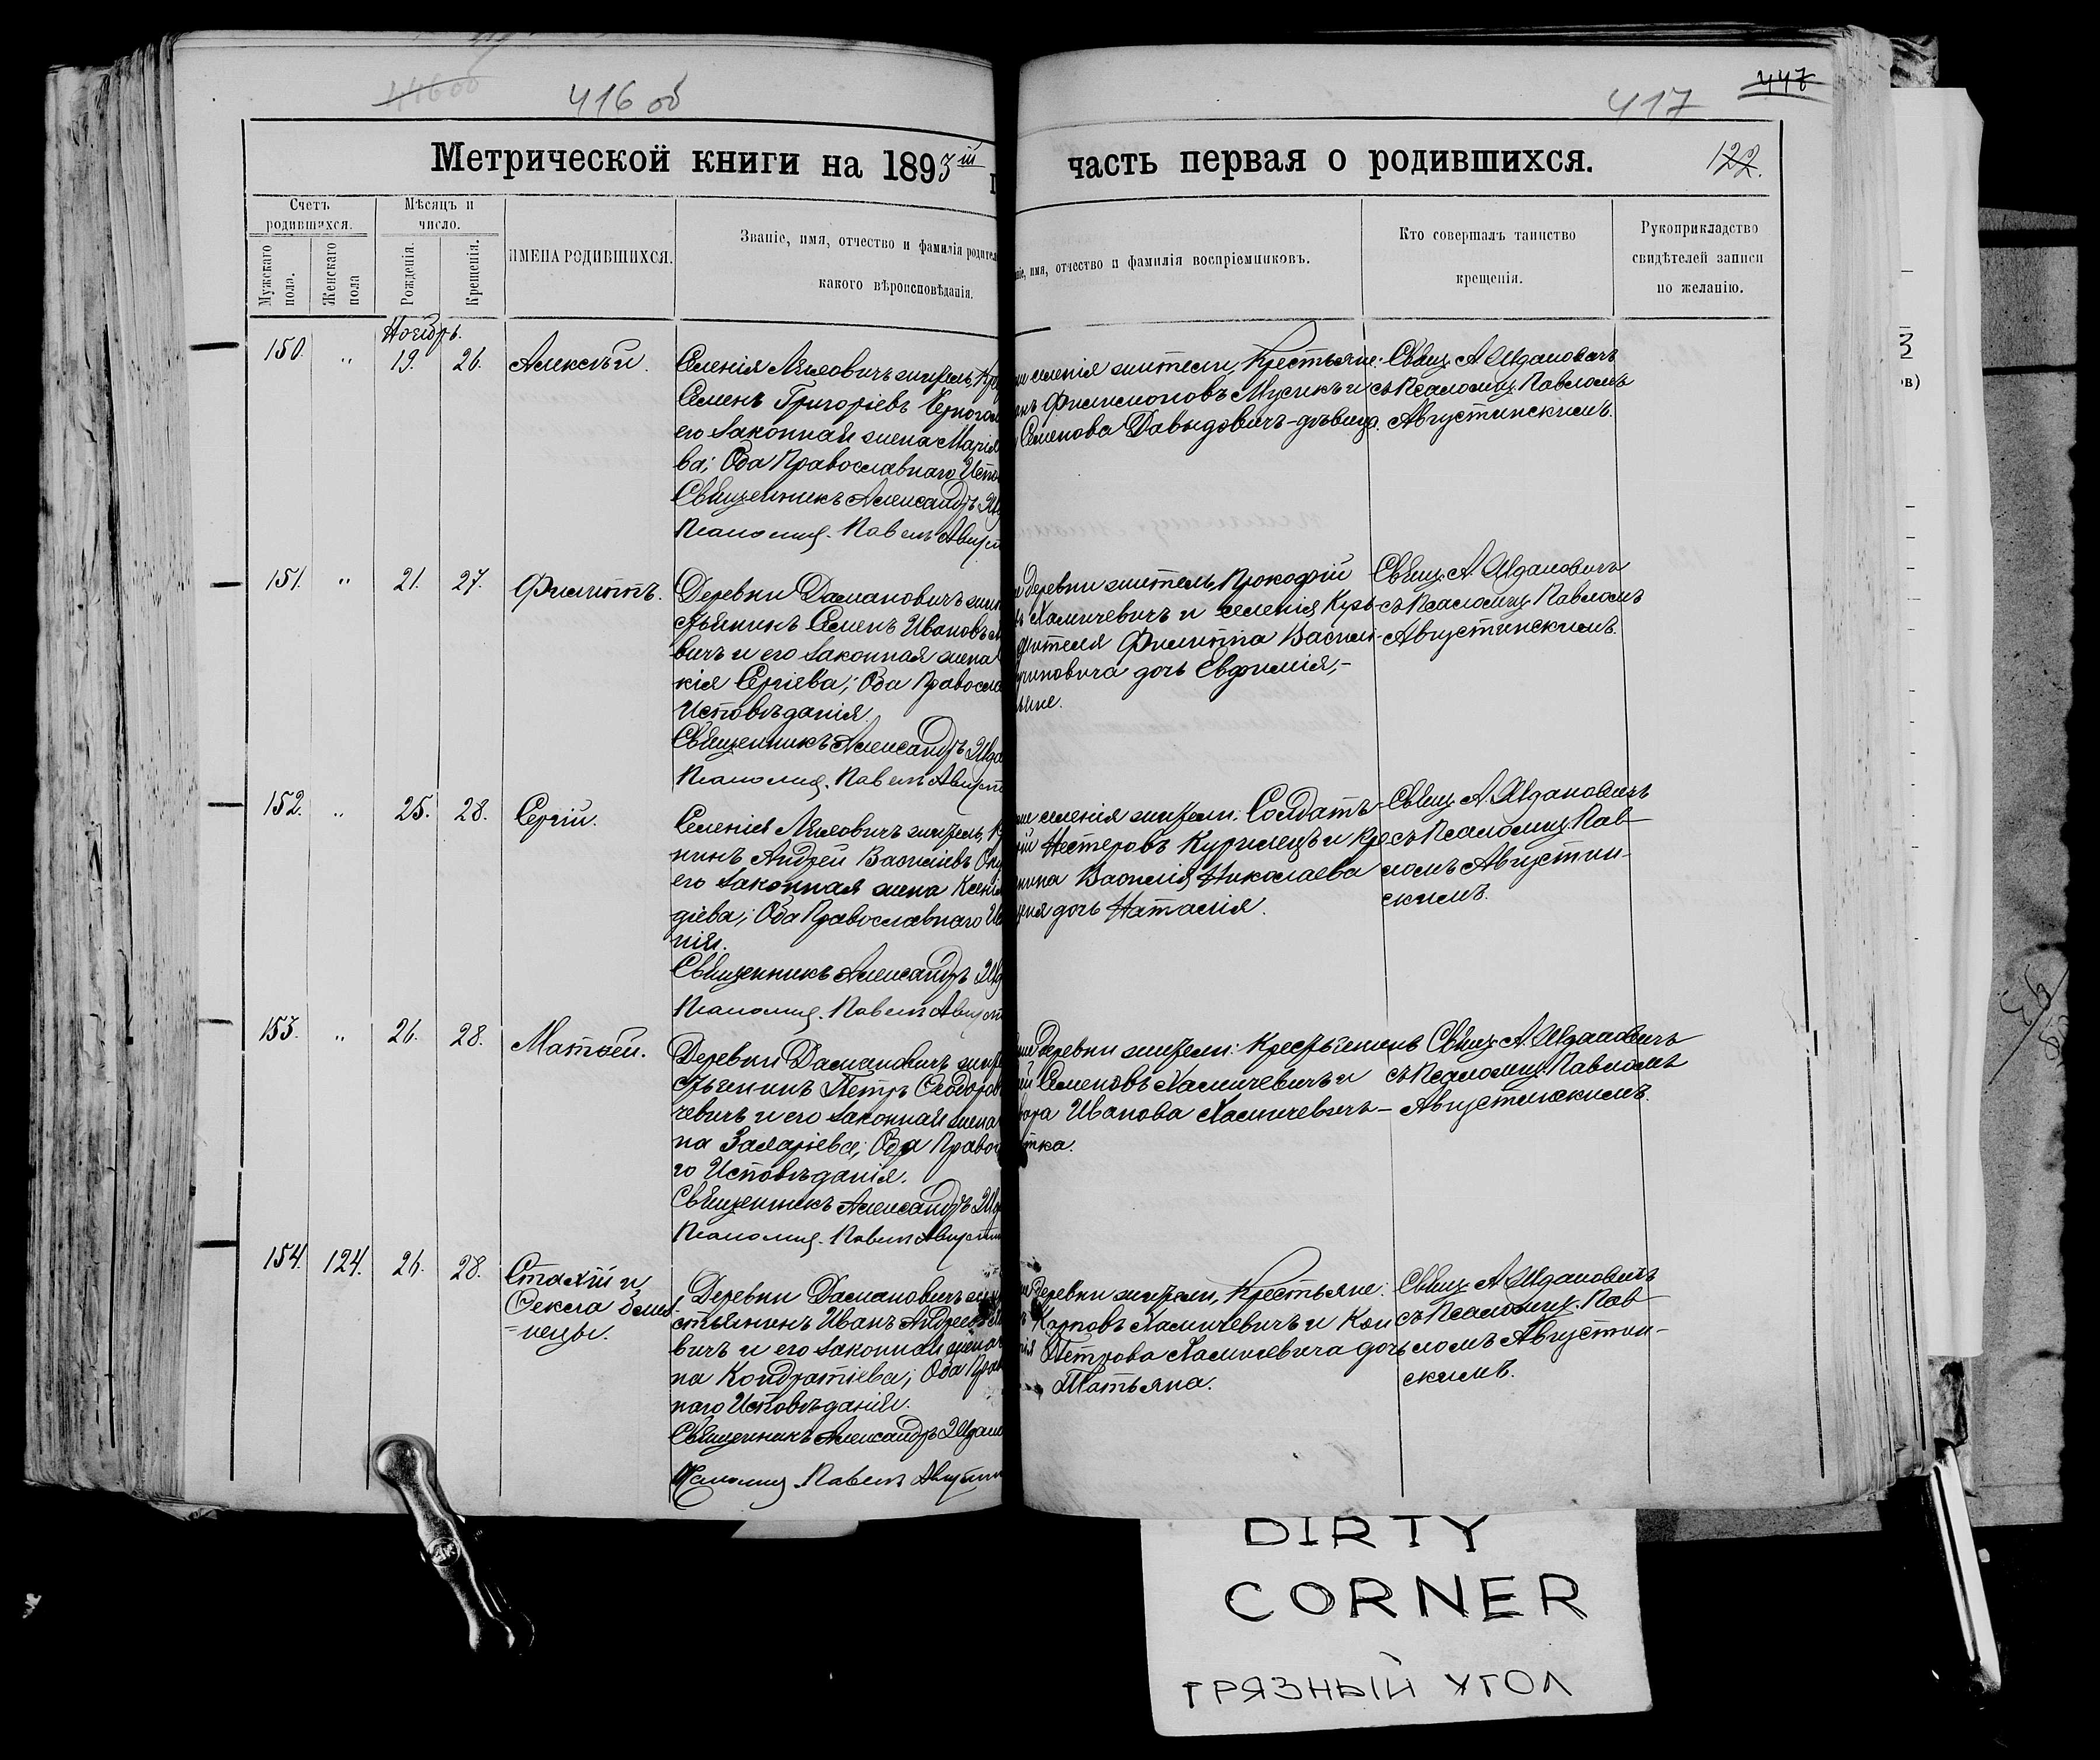 416 об
417
447
Метрической книги на 1893 ій
часть первая о родившихся.
122.
Счетъ родившихся.
Мѣсяцъ и число.
Мужскаго пола.
Женскаго пола
Рожденія.
Крещенія.
ИМЕНА РОДИВШИХСЯ.
Званіе, имя, отчество и фамилія родител
какого вѣроисповѣданія.
имя, отчество и фамилія воспріемниковъ.
Кто совершалъ таинство
крещенія.
Рукоприкладство
свидѣтелей записи
по желанію.
Ноябрь.
150. " 19. 26. Алексѣй.
Селенія Ляховичъ житель, Кре
Семенъ Григоріевъ
его законная жена Марія
ва; Оба Православнаго Испо
Священникъ Александръ
Псаломщ. Павелъ Август
селенія жители, Крестьяне:
Филимоновъ Мусикъ и
Семенова Давыдовичъ-дѣвица.
Свящ. А. Ждановичъ
съ Псаломщ. Павломъ
Августинскимъ.
151. " 21. 27. Филиппъ.
Деревни Дамановичъ жит
стьянинъ Семенъ Ивановъ
вичъ и его законная жена
кія Сергіева; Оба Правосла
Исповѣданія.
Священникъ Александръ Жда
Псаломщ. Павелъ Август
деревни житель, Прокофій
Хамичевичъ и селенія Куз-
жителя Филиппа Васил-
риновича дочь Евфимія,-
Свящ. А. Ждановичъ
съ Псаломщ. Павломъ
Августинскимъ.
152. " 25. 28. Сергій.
Селенія Ляховичъ житель, К
нинъ Андрей Василіевъ
его законная жена Ксенія
діева; Оба Православнаго Ис
нія.
Священникъ Александръ Жд
Псаломщ. Павелъ Август
селенія жители: Солдатъ
Нестеровъ Курилецъ и Кре
нина Василія Николаева
дочь Наталія.
Свящ. А. Ждановичъ
съ Псаломщ. Пав-
ломъ Августин-
скимъ.
153. " 26. 28. Матѳей.
Деревни Дамановичъ жите
стьянинъ Петръ Ѳеодоров
чевичъ и его законная жена
на Захаріева; Оба Правос
го Исповѣданія.
Священникъ Александръ Жд
Псаломщ. Павелъ Августин
деревни жители: Крестьянинъ
Семеновъ Хамичевичъ и
Иванова Хамичевичъ-
Свящ. А. Ждановичъ
съ Псаломщ. Павломъ
Августинскимъ.
154. 124. 26. 28. Стахій и
Ѳекла близ-
нецы.
Деревни Дамановичъ жит
стьянинъ Иванъ Андреевъ
вичъ и его законная жена
на Кондратіева; Оба Прав
наго Исповѣданія.
Священникъ Александръ Ждан
Псаломщ. Павелъ Августин
деревни жители, Крестьяне:
Карповъ Хамичевичъ и
Петрова Хамичевича дочь
Татьяна.
Свящ. А. Ждановичъ
съ Псаломщ. Пав-
ломъ Августин-
скимъ.
DIRTY
CORNER
ГРЯЗНЫЙ УГОЛ